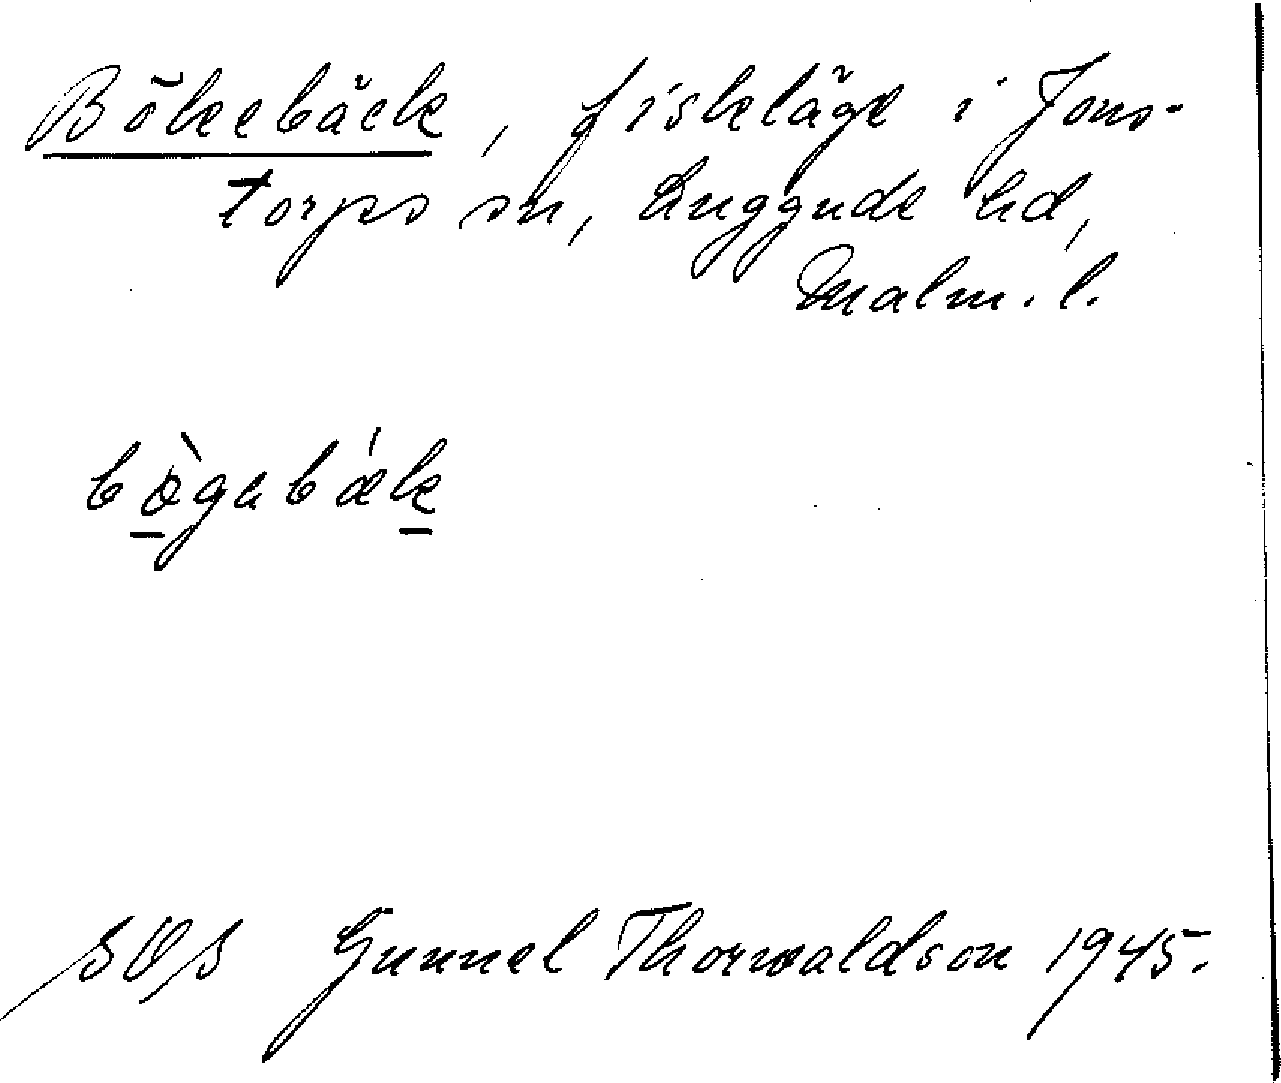 Bökebäck, fiskeläge i Jons-
torps sn, Luggude hd,
Malm. l.
bø̀gabǽk
Gunnel Thorwaldson 1945.